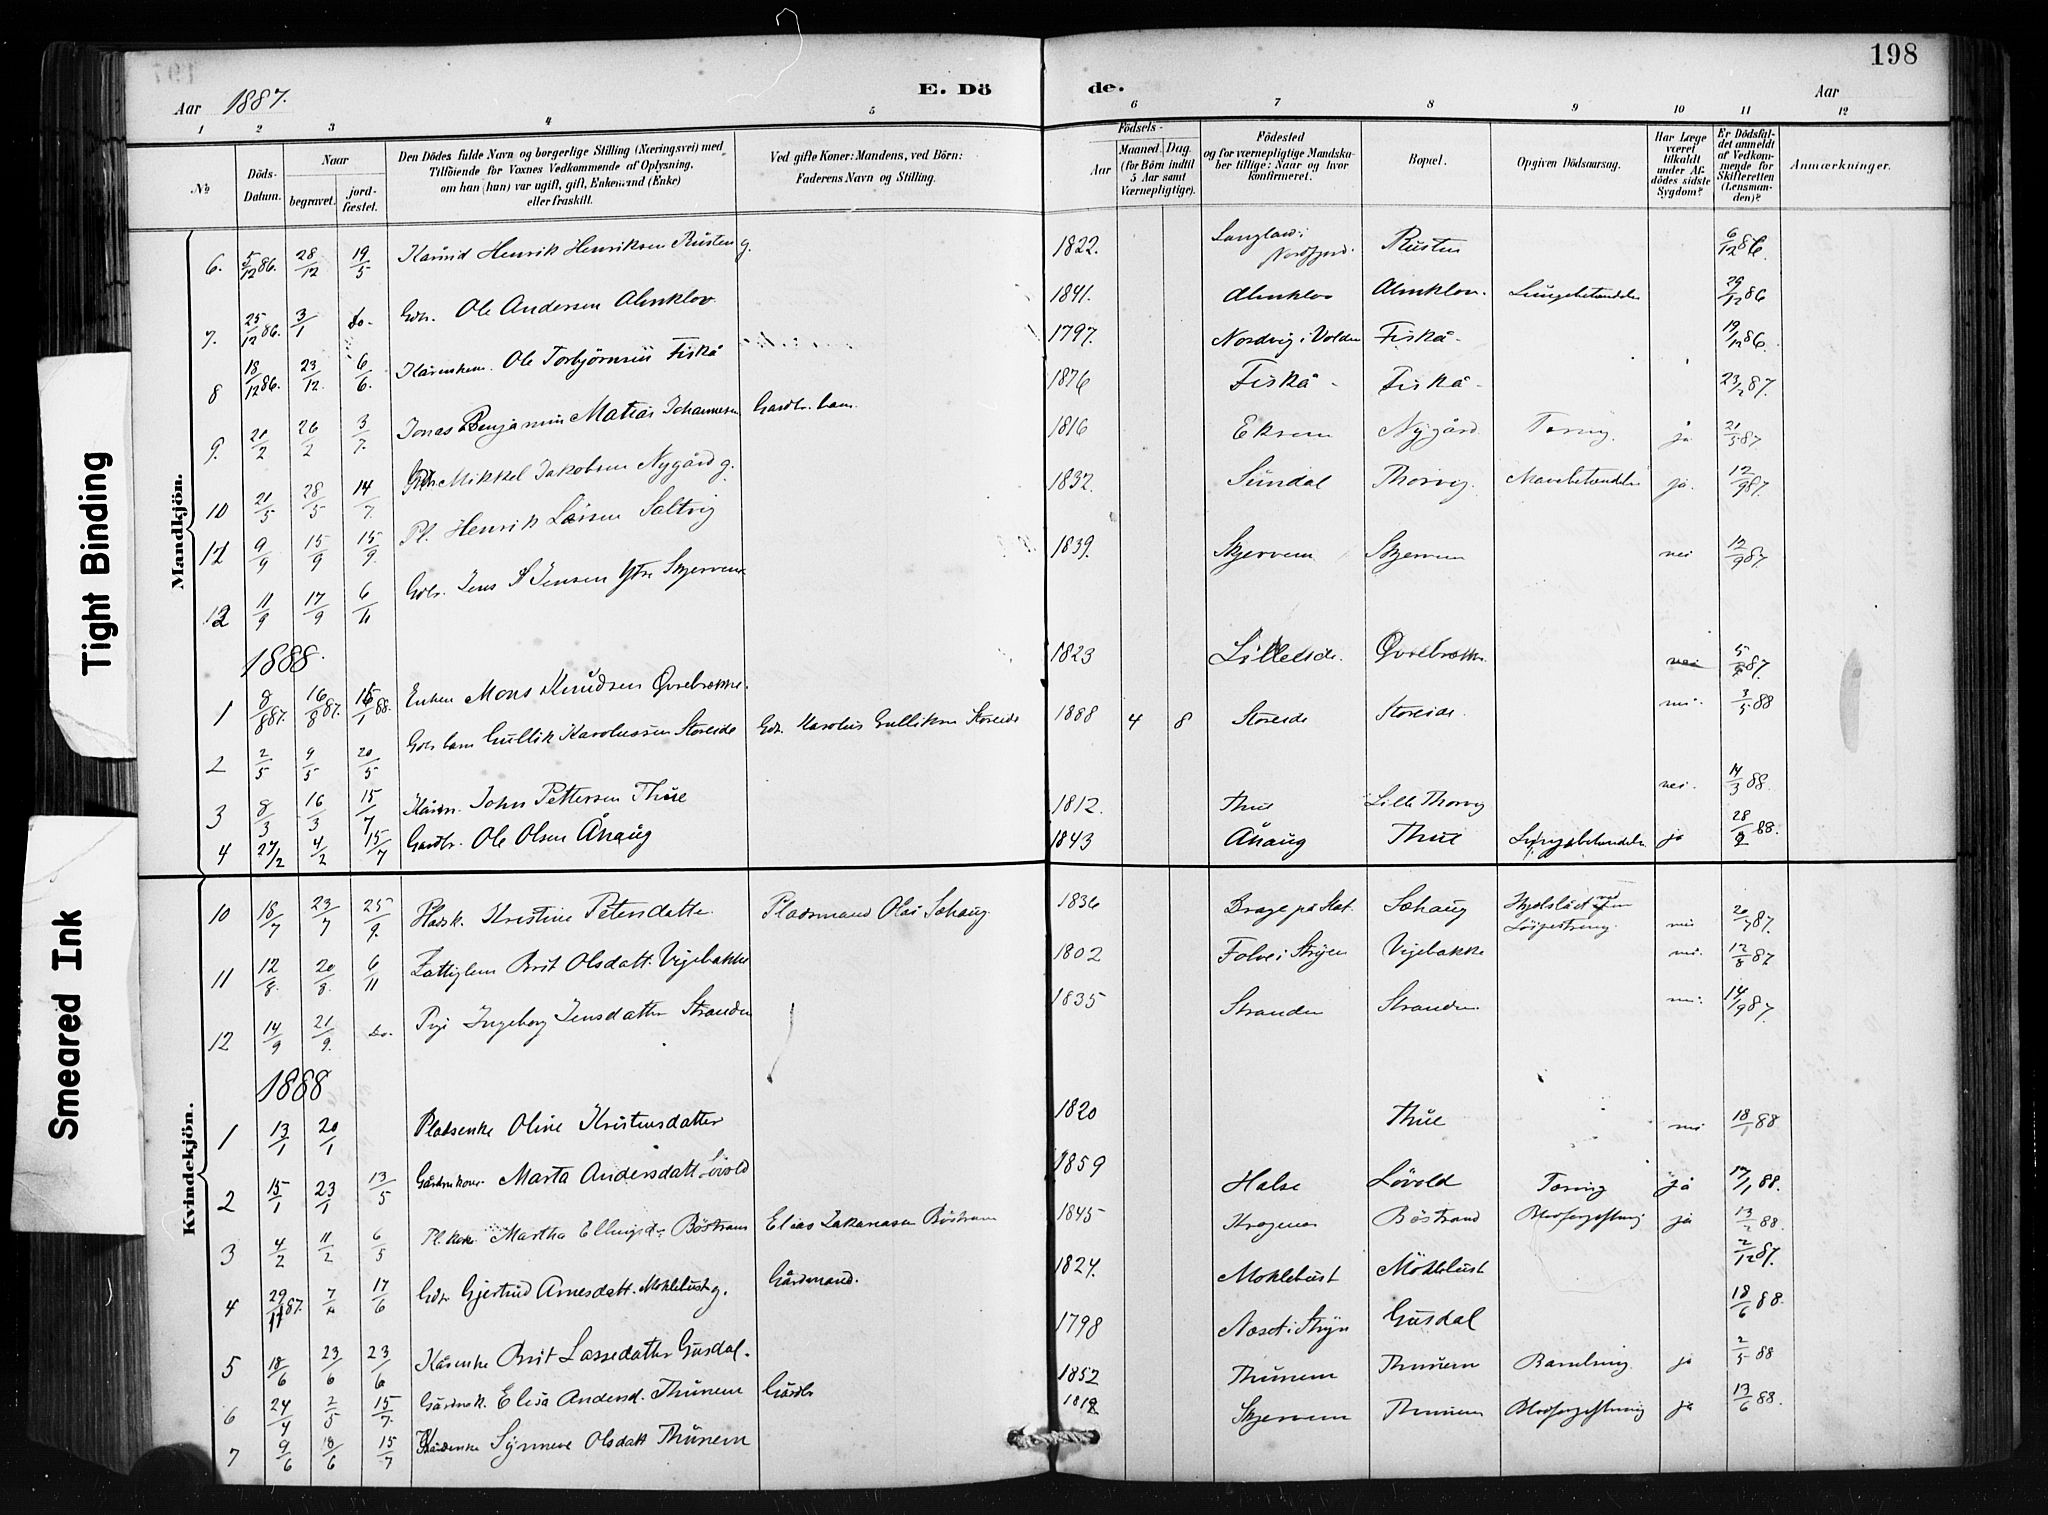 198
Aar 1887.
E. Dö de.
Aar
1 2 3 4 5 6 7 8 9 10 11 12
No
Döds-Datum.
Naar
begravet.
jord-fæstet.
Den Dödes fulde Navn og borgerlige Stilling (Næringsvei) med
Tilföiende for Voxnes Vedkommende af Oplysning,
om han (hun) var ugift, gift, Enkemand (Enke)
eller fraskilt.
Ved gifte Koner: Mandens, ved Börn:
Faderens Navn og Stilling.
Födsels-
Aar
Maaned. Dag.
(for Börn indtil
5 Aar samt
Værnepligtige).
Födested
og for værnepligtige Mandska-
ber tillige: Naar og hvor
konfirmeret.
Bopæl.
Opgiven Dödsaarsag.
Har Læge
været
tilkaldt
under Af-
dödes sidste
Sygdom?
Er Dödsfal-
det anmeldt
af Vedkom-
mende for
Skifteretten
(Lensman-
den)?
Anmærkninger.
Mandkjön.
6. 5/12 86. 28/12 19/5 Henrik Henriksen Rusten g. 1822. Nordfjord. Rusten 6/12 86.
7. 25/12 86. 3/1 do. Gdbr. Ole Andersen Almklov 1841. Almklov Almklov. Lungebetændelse 29/12 86
8 18/12 86. 23/12. 6/6. Ole Torbjørnsen Fiskå 1797. Nordvig i Volden Fiskå 19/12 86.
9. 21/2 26/2 3/7. Jonas Benjamin Matias Johannesen Gardbr. barn 1876 Fiskå Fiskå 23/2 87.
10 21/5 28/5 14/7. Gdbr Mikkel Jakobsen Nygård g. 1816 Eksem Nygård Tæring. ja 21/5 87
11 9/9 15/9 15/9. Pl. Henrik Larsen Saltvig 1832. Sundal Thorvig. Mavebetændelse ja. 12/9 87.
12 11/9 17/9 6/11 Gdbr. Jens S Jensen Ytre Skjervem 1839. Skjervem Skjervem nei 12/9 87.
1888.
1 8/8 87. 16/8 87. 15/1 88. Mons Knudsen Øvrebrække. 1823 Øvrebrække. nei 87.
2 2/5 9/5 20/5 Gdbr barn Gullik Karolussen Storeide Gdr. Karolus Gulliksen Storeide 1888 4 8 Storeide Storeide. nei. 3/5 88
3 8/3 16/3 15/7 John Pettersen Thue 1812. Thue Lille Thorvig nei. 14/3 88.
4 27/2 4/2 15/7 Gardbr. Ole Olsen Åhaug 1843 Åhaug Thue Lungebetændelse ja 28/2 88.
Kvindekjön.
10 18/7 23/7 25/9. Pladsk. Kristine Petersdatter Pladsmand Olai Sæhaug. 1836 Brage på Stat. Sæhaug nei 20/7 87.
11 12/8. 20/8. 6/11 Fattiglem Brit Olsdatt. Vijebakke 1802 Folve i Stryen Vijebakke nei. 12/8 87
12 14/9 21/9. do. Pige Ingeborg Jensdatter Stranden 1835 Stranden Stranden nei. 14/9 87.
1888
1 13/1 20/1 Pladsenke Oline Kristensdatter 1820 Thue nei 18/1 88
2 15/1 23/1 13/5 Gårdmkone Marta Andersdatt. Løvold 1859 Halse Løvold Tæring ja 17/1 88.
3 4/2 11/2 6/5 Pl. Kone Martha Ellingsd. Böstrand Elias Zakariasen Böstrand 1845 Böstrand Blodforgiftning ja 13/2 88.
4 29/11 87. 17/6 Gdbr Gjertrud Arnesdatt. Moklebust g. Gårdmand. 1824. Moklebust Möklebust 2/12 87.
5 18/6 23/6 23/6 Kårenke Brit Lassedatter Gusdal. 1798 Næset i Stryn Gusdal 18/6 88.
6 24/4 2/5 15/7. Gårdmk. Elisa Andersd. Thunem Gårdbr 1852 Thunem Thunem Barselseng. ja 2/5 88
7 9/6 18/6 15/7 Kårenke Synneve Olsdatt Thunem 1812 Skjervem Thunem Blodforgiftning ja 13/6 88.
Tight Binding
Smeared Ink